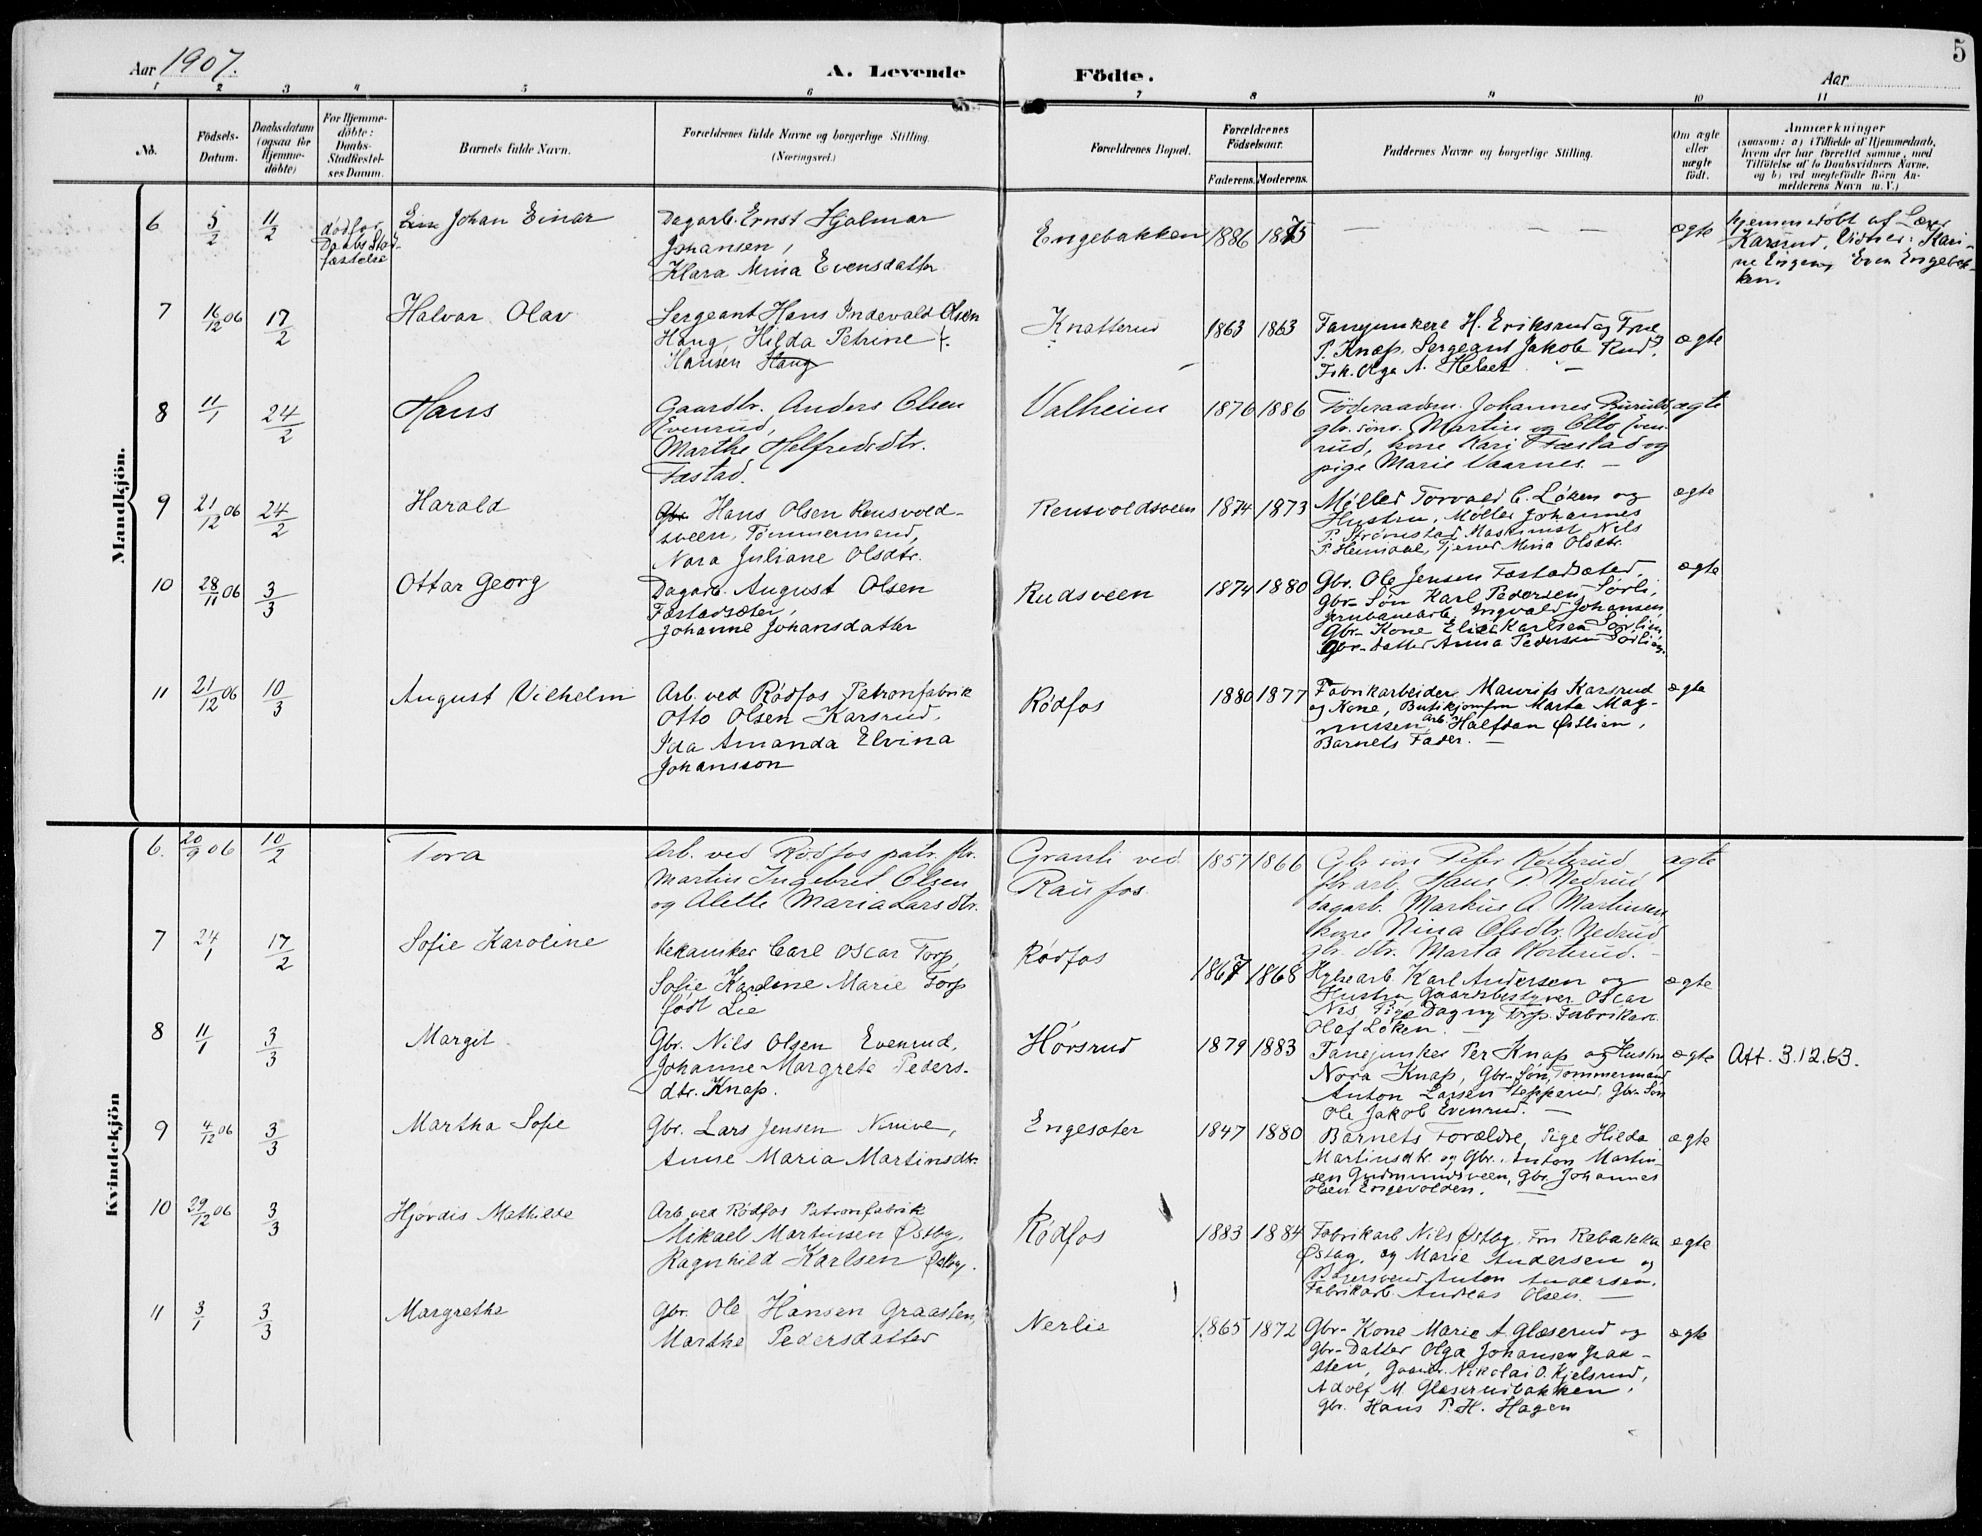 Aar 1907.
A. Levende Födte.
Aar
5
1 2 3 4 5 6 7 8 9 10 11
No.
Födsels-
Datum.
Daabsdatum
(ogsaa for
Hjemme-
döbte)
For Hjemme-
döbte:
Daabs-
Stadfæstel-
ses Datum.
Barnets fulde Navn.
Forældrenes fulde Navne og borgerlige Stilling.
(Næringsvei.)
Forældrenes Bopæl.
Forældrenes
Födselsaar.
Faderens. Moderens.
Faddernes Navne og borgerlige Stilling.
Om ægte
eller
uægte
födt.
Anmærkninger
(saasom: a) i Tilfælde af Hjemmedaab,
hvem der har forrettet samme, med
Tilföielse af to Daabsvidners Navne,
og b) ved uægtefödte Börn An-
melderens Navn m. V.)
Mandkjön.
6
5/2
11/2
død før
Daabs Stad-
fæstelse
Johan Einar
Dagarb. Ernst Hjalmar
Johansen,
Klara Mina Evensdatter
Engebakken
1886
1875
— — —
ægte
hjemmedøbt af Lærer
Karsrud, Vidner: Kari-
ne Engen og Even Engebak-
ken.
7
16/12 06
17/2
Halvar Olav
Sergeant Hans Indevald Olsen
Haug, Hilda Petrine
Hansen Haug
Knatterud
1863
1863
Fanejunkere H. Eriksrud og
P. Knap. Sergeant Jakob Rud,
Frk. Olga A. Helset. —
ægte
8
11/1
24/2
Hans
Gaardbr. Anders Olsen
Evenrud,
Marthe Helfredsdtr.
Fæstad.
Valheim
1876
1886
Føderaadsm. Johannes
gbr. søns. Martin og Otto Even-
rud, kone Kari Fæstad og
pige Marie Vaarnes. —
ægte
9
21/12 06
24/2
Harald
Gbr Hans Olsen Rensvold-
sveen, Tømmermand,
Nora Juliane Olsdtr.
Rensvoldsveen
1874
1873
Møller Torvald C. Løken og
Hustru, Møller Johannes
P. Strømstad, Maskinist Nils
P. Heimdal, Tjener Mina Olsdtr.
ægte
10
28/11 06
3/3
Ottar Georg
Dagarb. August Olsen
Fæstadsæter,
Johanne Johansdatter
Rudsveen
1874
1880
Gbr. Ole Jensen Fæstadsæter,
Gbr-Søn Karl Pedersen Sørli,
Jernbanearb. Ingvald Johansen,
Gbr-Kone Elise Karlsen Sørlien,
Gbr-Datter Anna Pedersen Sørlien.
ægte
11
21/12 06
10/3
August Vilhelm
Arb. ved Rødfos Patronfabrik
Otto Olsen Karsrud,
Ida Amanda Elvina
Johansson
Rødfos
1880
1877
Fabrikarbeider Maurits Karsrud
og Kone, Butikjomfru Marta Mag-
nussen, Arb. Halfdan Østlien,
Barnets Fader. —
ægte
Kvindekjön
6.
20/9 06
10/2
Tora
Arb. ved Rødfos patr. fbr.
Martin Ingebret Olsen
og Alette Maria Larsdtr.
Granli ved
Raufos
1857
1866
Gbr. søn Peter Korterud
gbr. arb. Hans P. Nedrud
dagarb. Markus A. Martinsen
kone Nina Olsdtr. Nedrud
gbr. dtr. Marta Korterud. —
ægte
7
24/1
17/2
Sofie Karoline
Mekaniker Carl Oscar Torp,
Sofie Karoline Marie Torp
født Lie
Rødfos
1867
1868
Hylsearb. Karl Andersen og
Hustru, Gaardsbestyrer Oscar
Nes, Pige Dagny Torp. Fabrikarb.
Olaf Løken. —
ægte
8
11/1
3/3
Margit
Gbr. Nils Olsen Evenrud,
Johanne Margrete Peders-
dtr. Knap.
Hørsrud
1879
1883
Fanejunker Per Knap og Hustru
Nora Knap, Gbr-Søn, Tømmermand
Anton Larsen Stepperud, Gbr-Søn
Ole Jakob Evenrud. —
ægte
Att. 3.12.63.
9
4/12 06
3/3
Martha Sofie
Gbr. Lars Jensen Ninive,
Anne Maria Martinsdtr.
Engesæter
1847
1880
Barnets Forældre, Pige Hilda
Martinsdtr. og Gbr. Anton Martin-
sen Gudmundsveen, Gbr. Johannes
Olsen Engevolden. —
ægte
10
29/12 06
3/3
Hjørdis Mathilde
Arb. ved Rødfos Patronfabrik
Mikael Martinsen Østby,
Ragnhild Karlsen Østby.
Rødfos
1883
1884
Fabrikarb Nils Østby, Fru Rebekka
Østby, og Marie Andersen og
Anton Andersen,
Fabrikarb. Andreas Olsen. —
ægte
11
3/1
3/3
Margrethe
Gbr. Ole Hansen Graasten,
Marthe Pedersdatter
Nerlie
1865
1872
Gbr-Kone Marie A. Glæserud og
Gbr-Datter Olga Johansen Graa-
sten, Gaardbr. Nikolai O. Kjelsrud,
Adolf M. Glæserudbakken,
Gbr. Hans P. H. Hagen
ægte